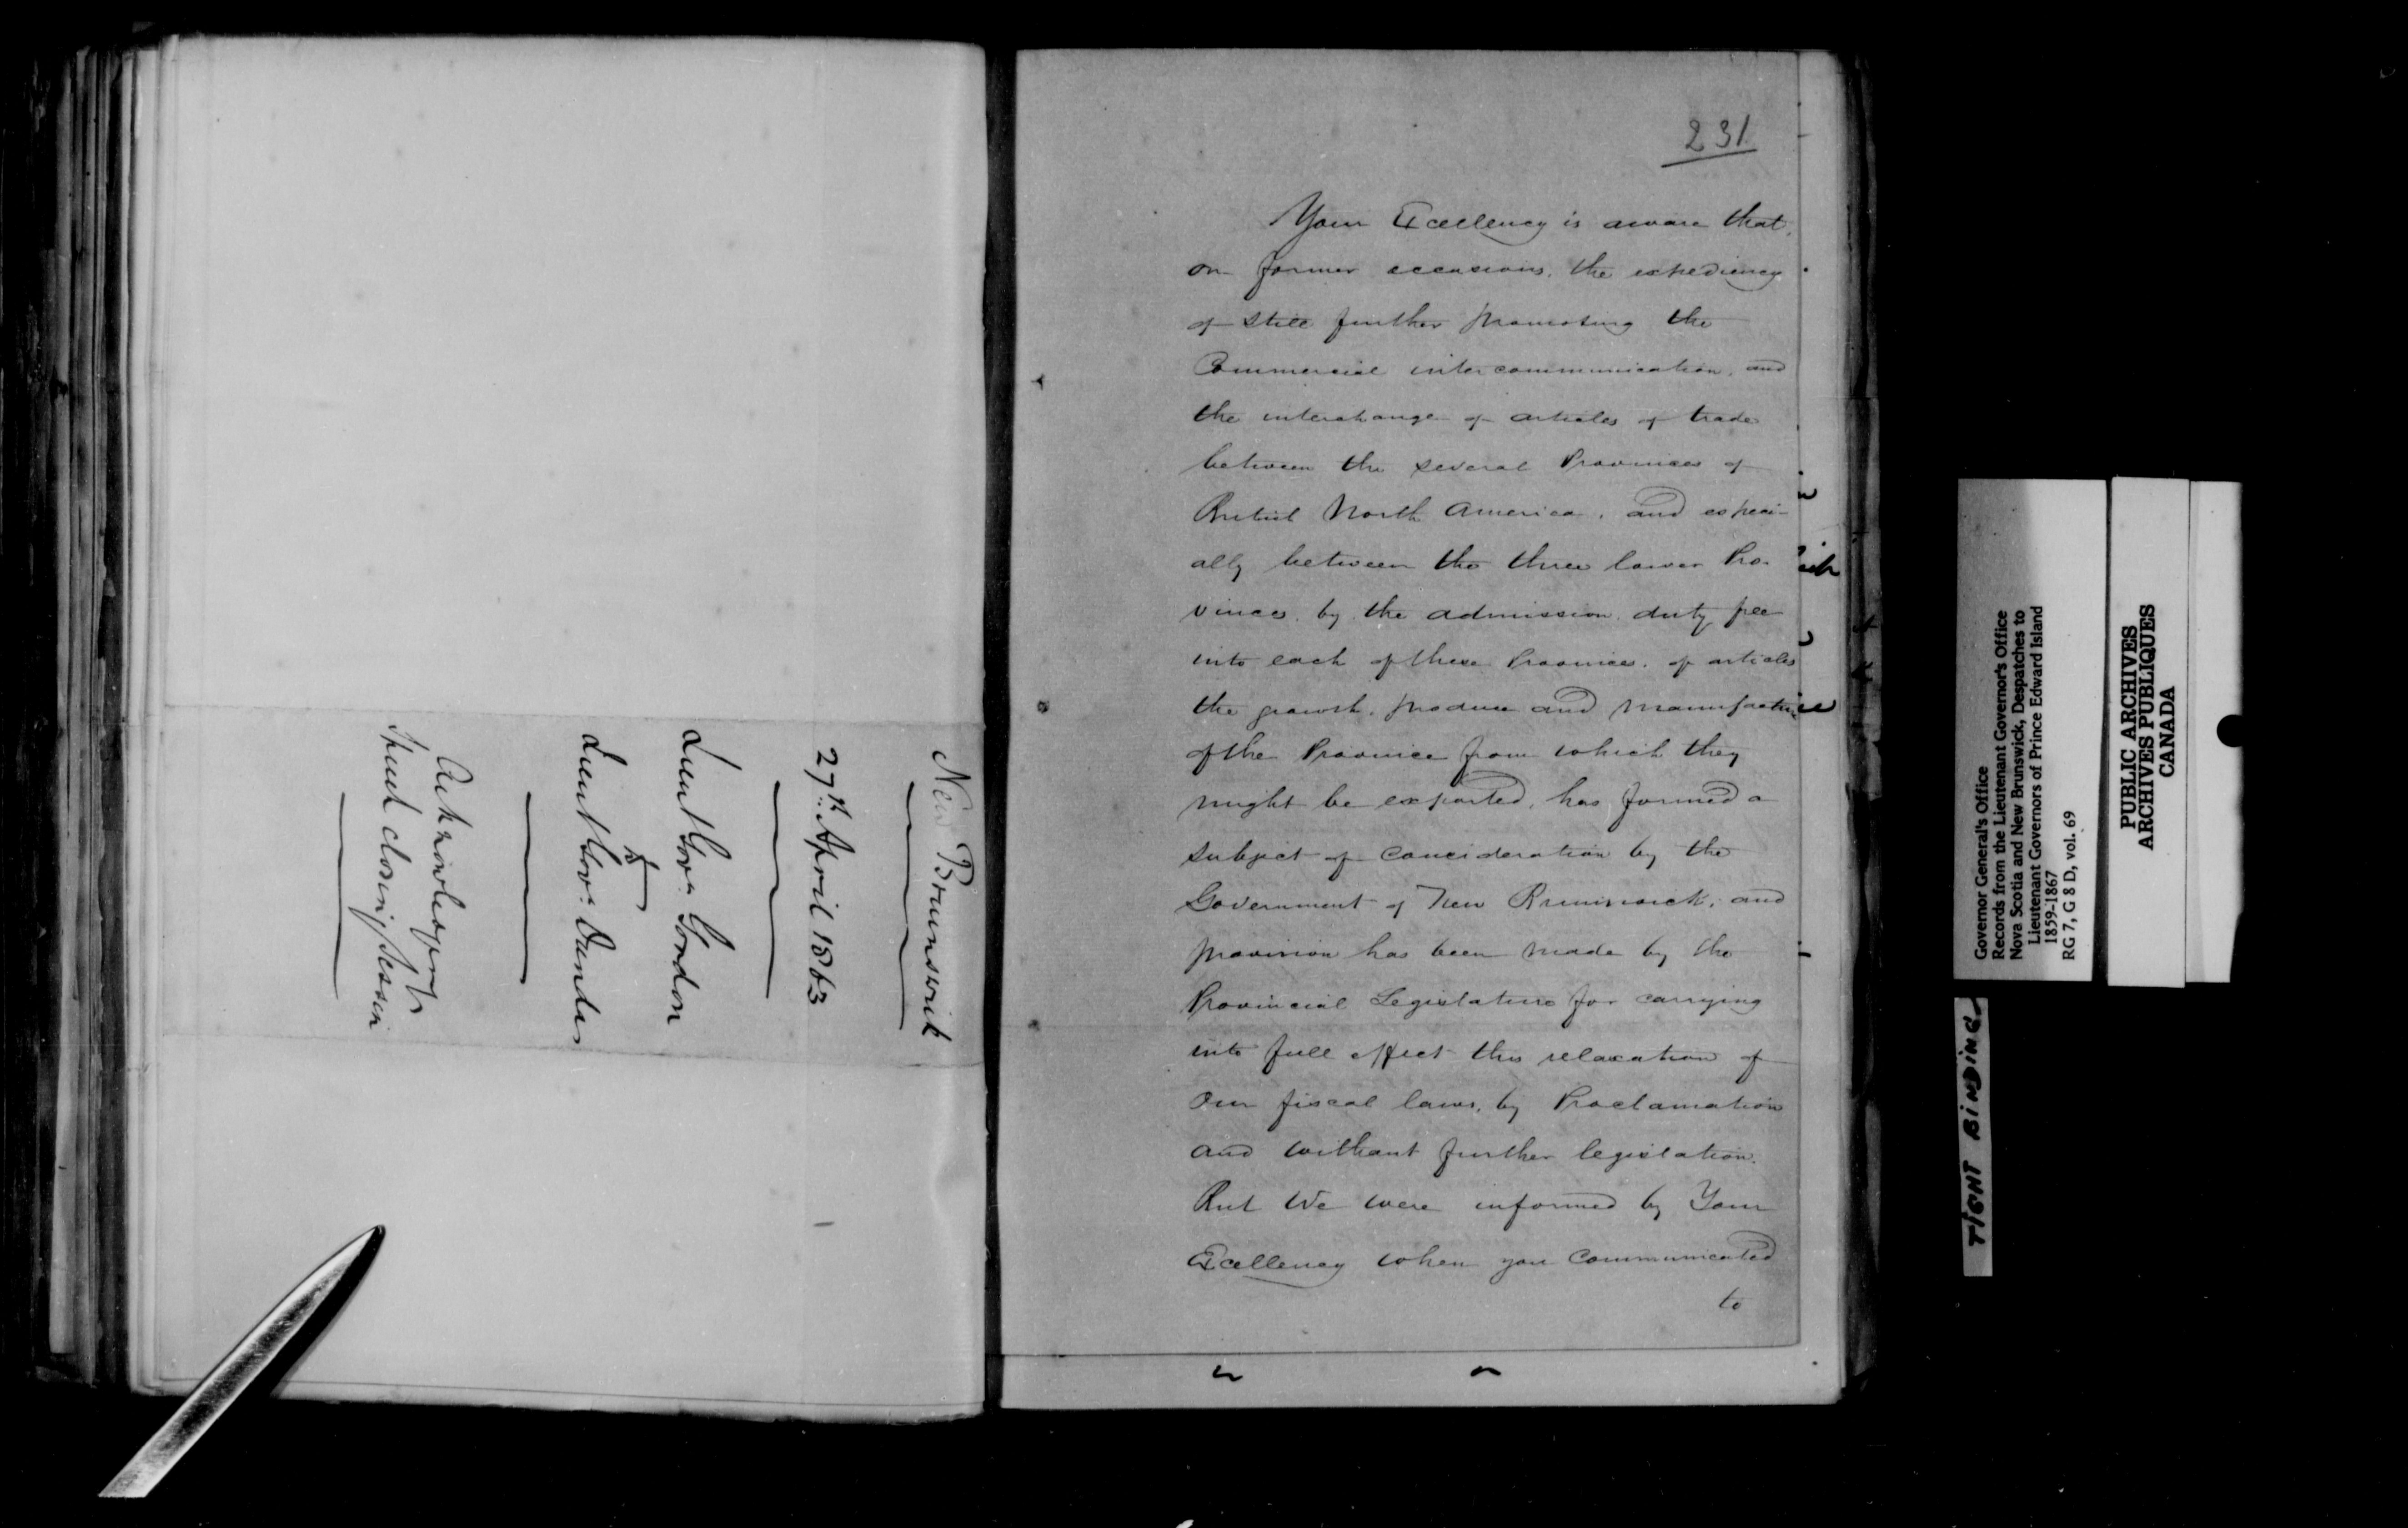 New Brunswick
27th April 1863
Lieut Govr. Gordon
to
Lieut Govr. Dundas
Acknowledgmt of
Speech closing Session
231
Your Excellency is aware that,
on former occasions, the expediency
of still further promoting the
Commercial intercommunication, and
the interchange of articles of trade
between the several Provinces of
British North America, and especi-
ally between the three lower Pro-
vinces, by the admission duty free
into each of these Provinces, of articles
the growth, produce and manufacture
of the Province from which they
might be exported, has formed a
subject of consideration by the
Government of New Brunswick, and
provision has been made by the
Provincial Legislature for carrying
into full effect this relaxation of
our fiscal laws, by Proclamation
and without further legislation.
But We were informed by Your
Excellency when you communicated
to
Governor General's Office
Records from the Lieutenant Governor's Office
Nova Scotia and New Brunswick, Despatches to
Lieutenant Governors of Prince Edward Island
1859-1867
RG 7, G 8 D, vol. 69
PUBLIC ARCHIVES
ARCHIVES PUBLIQUES
CANADA
TIGHT BINDING